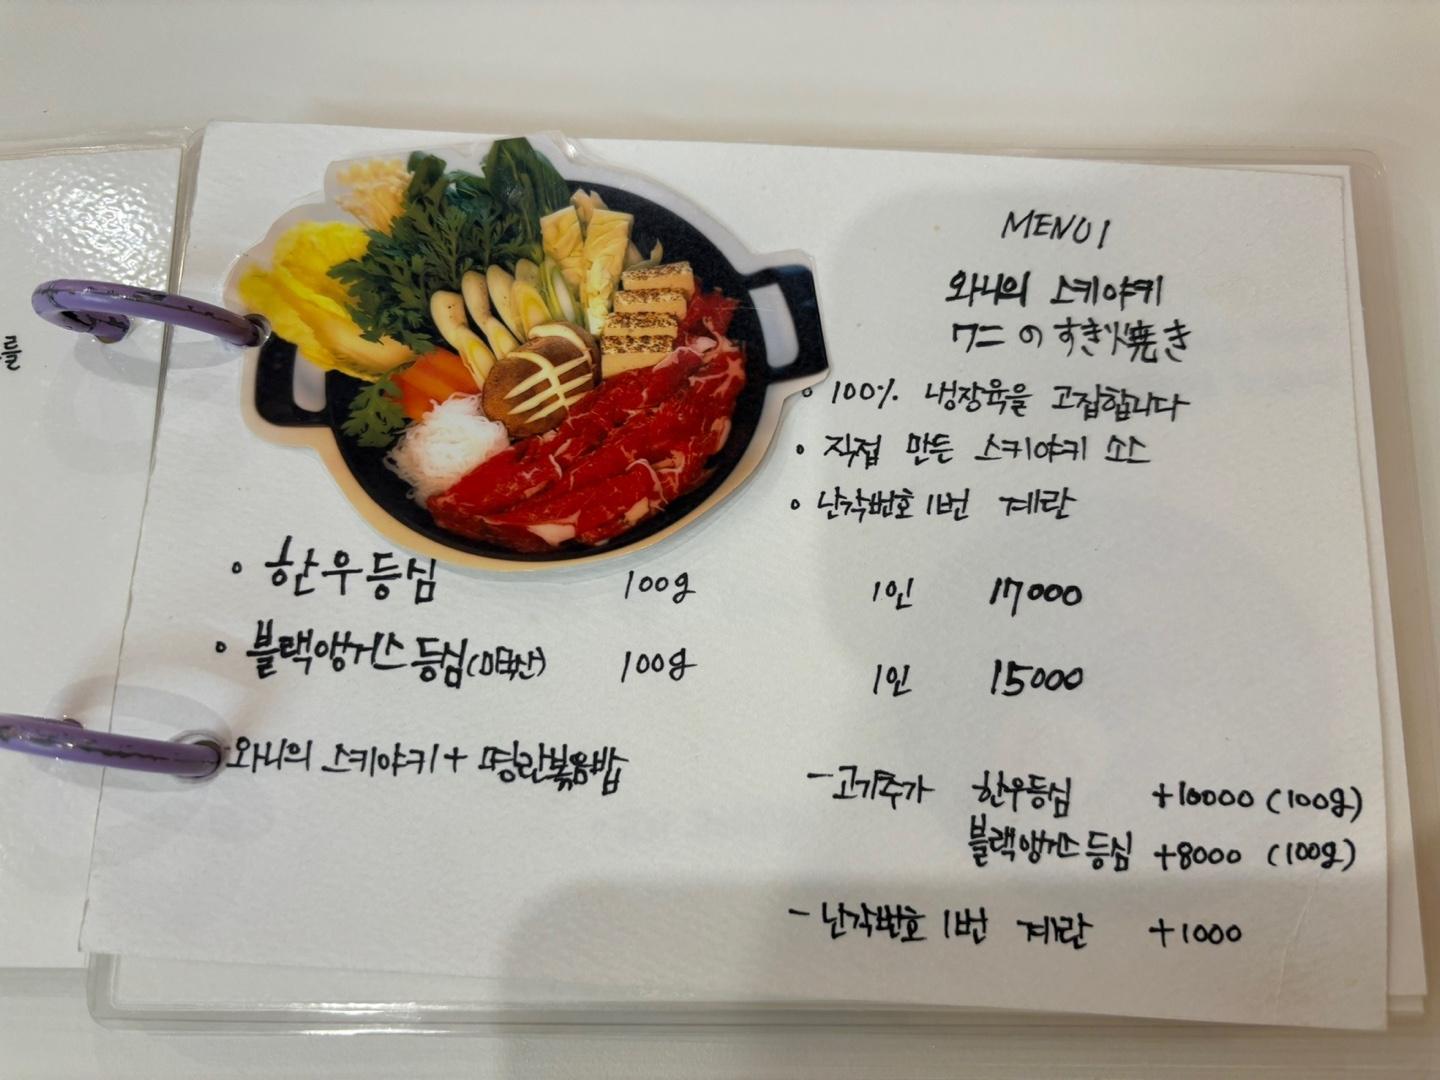 를
MENU 1
와니의 스키야키
ワニのすき焼き
○ 100% 냉장육을 고집합니다
○ 직접 만든 스키야키 소스
○ 난각번호 1번 계란
○ 한우등심 100g 1인 17000
○ 블랙앵거스 등심(미국산) 100g 1인 15000
와니의 스키야키 + 명란볶음밥
- 고기추가 한우등심 +10000 (100g)
블랙앵거스 등심 +8000 (100g)
- 난각번호 1번 계란 +1000